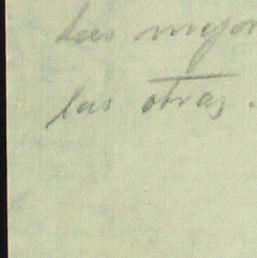 las mejor
las otras.